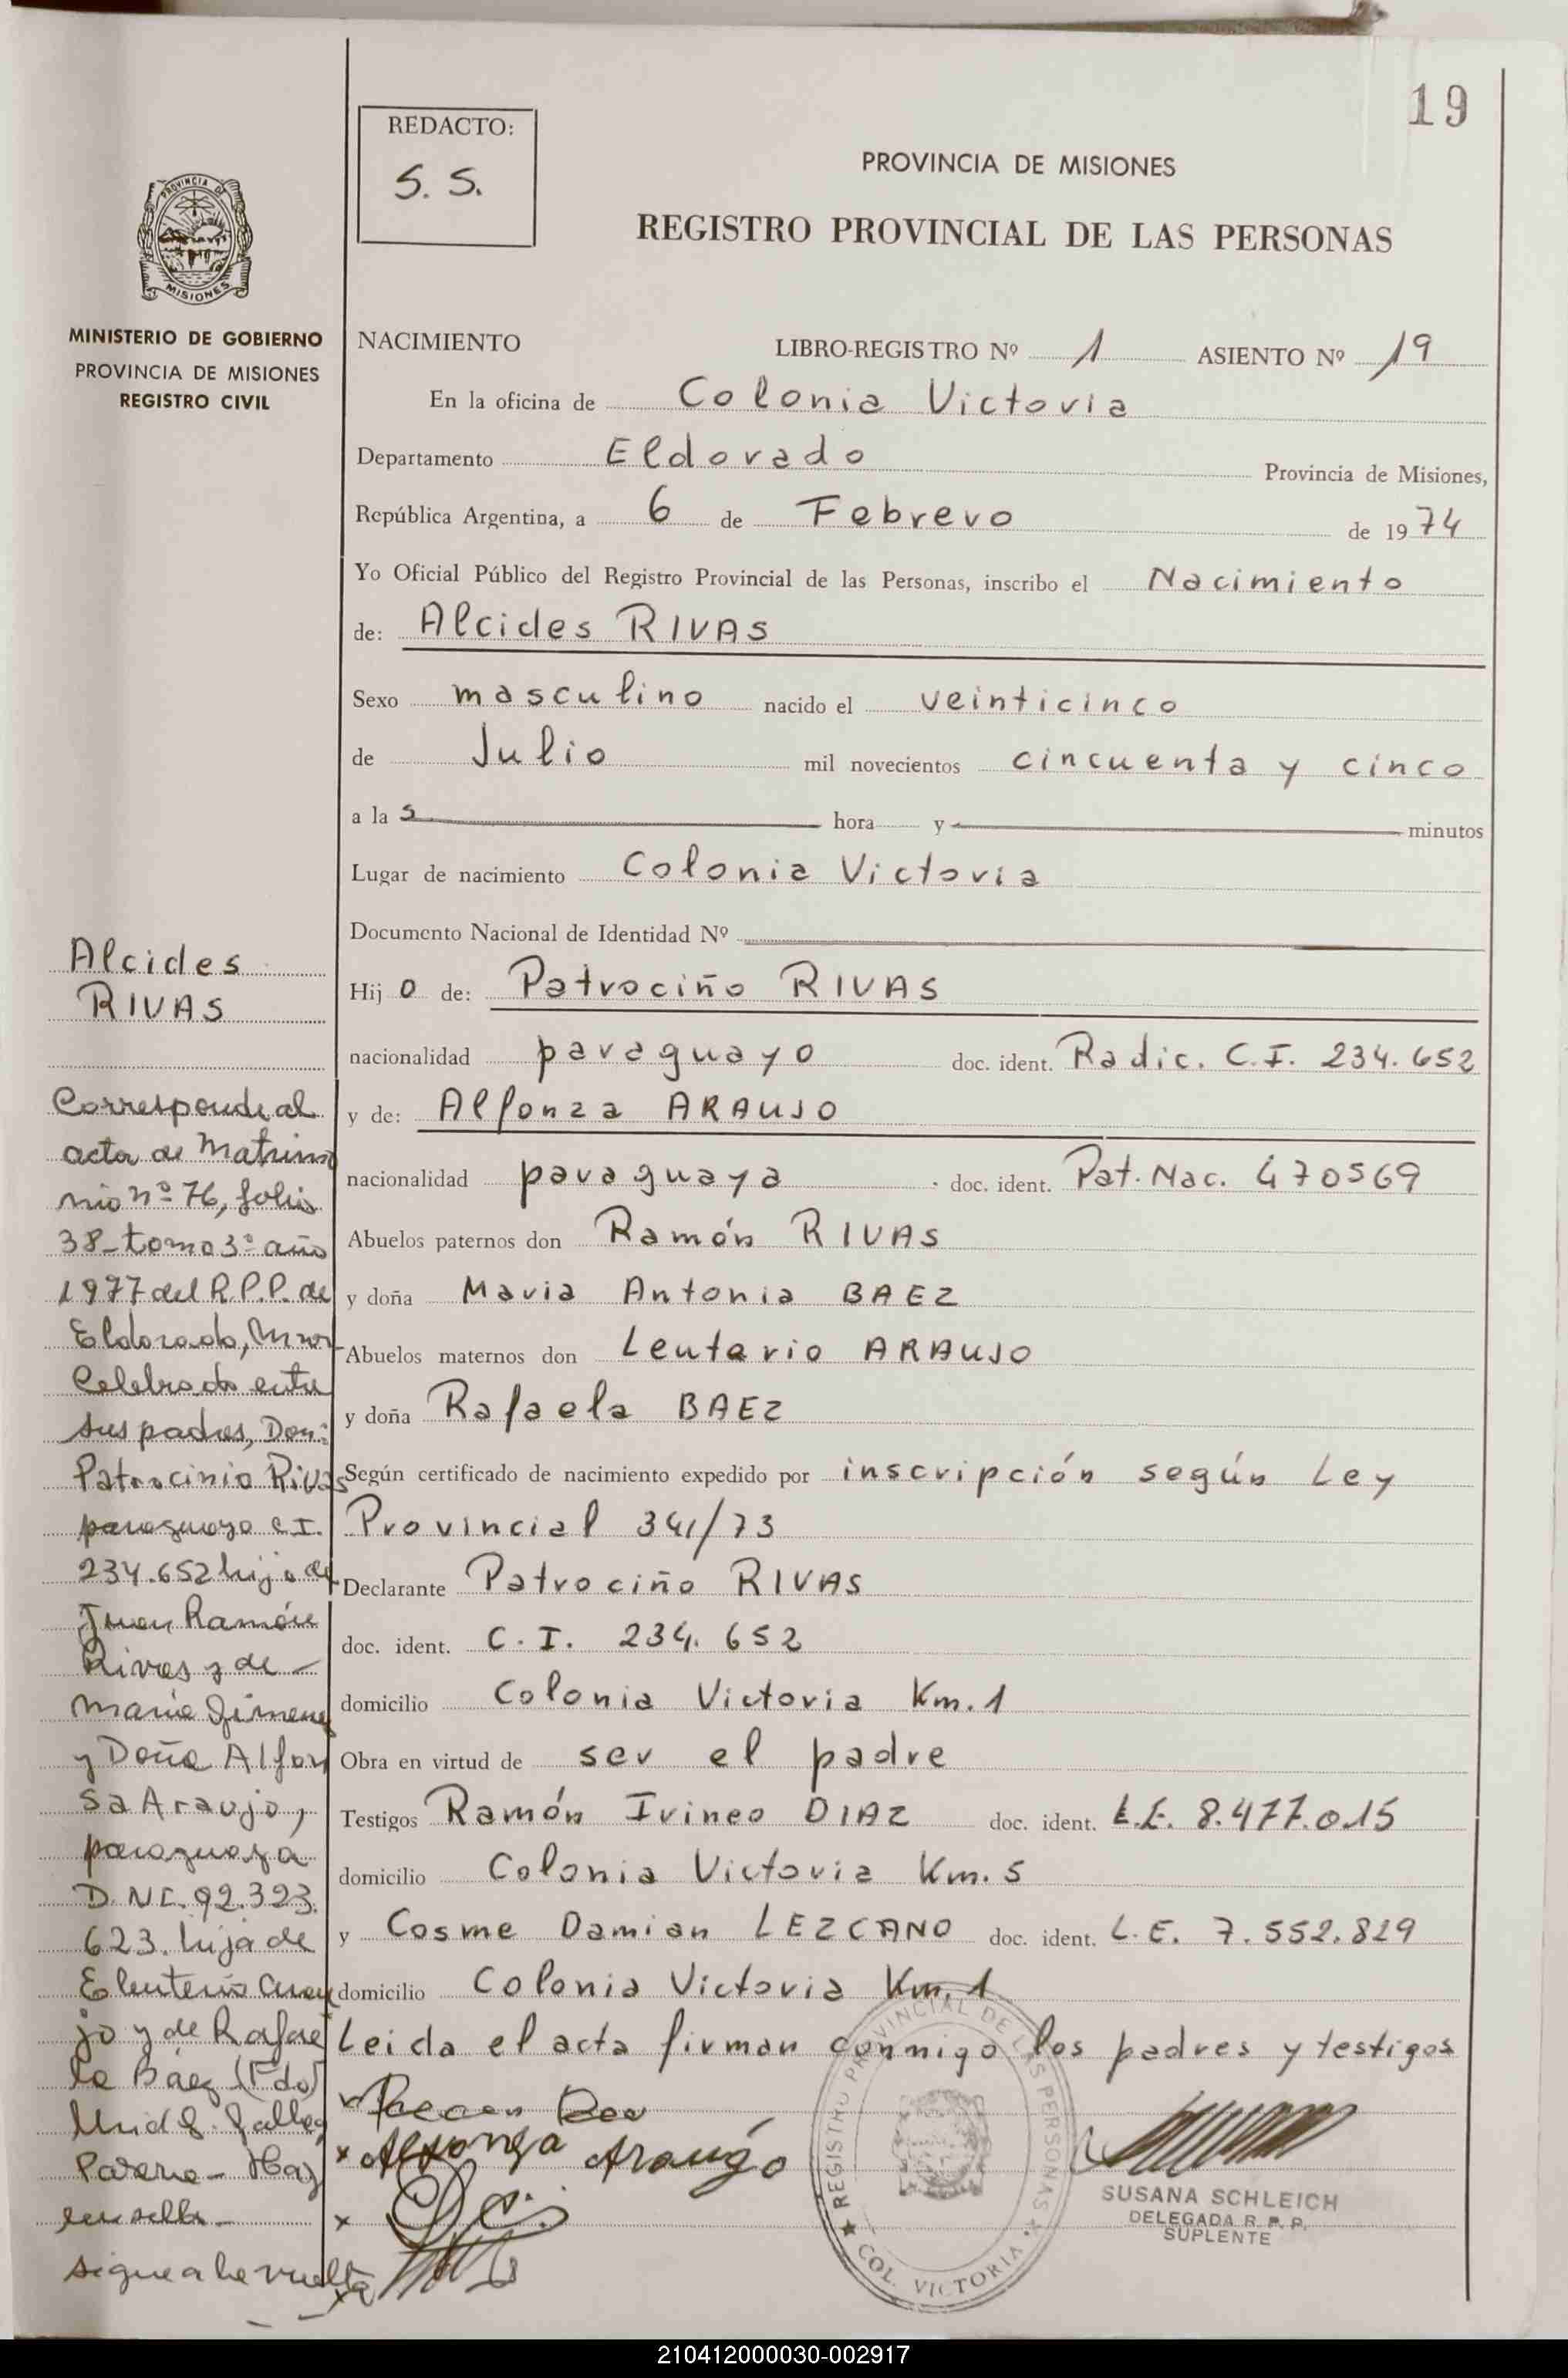 19
REDACTO:
S. S.
PROVINCIA DE MISIONES
REGISTRO PROVINCIAL DE LAS PERSONAS
PROVINCIA DE
MISIONES
MINISTERIO DE GOBIERNO
PROVINCIA DE MISIONES
REGISTRO CIVIL
NACIMIENTO LIBRO-REGISTRO Nº 1 ASIENTO Nº 19
En la oficina de Colonia Victoria
Departamento Eldorado Provincia de Misiones,
República Argentina, a 6 de Febrero de 1974
Yo Oficial Público del Registro Provincial de las Personas, inscribo el Nacimiento
de: Alcides RIVAS
Sexo masculino nacido el veinticinco
de Julio mil novecientos cincuenta y cinco
a la s hora y minutos
Lugar de nacimiento Colonia Victoria
Documento Nacional de Identidad Nº
Hij o de: Patrociño RIVAS
nacionalidad paraguayo doc. ident. Radic. C.I. 234.652
y de: Alfonza ARAUJO
nacionalidad paraguaya doc. ident. Pat. Nac. 470569
Abuelos paternos don Ramón RIVAS
y doña Maria Antonia BAEZ
Abuelos maternos don Leutario ARAUJO
y doña Rafaela BAEZ
Según certificado de nacimiento expedido por inscripción según Ley
Provincial 341/73
Declarante Patrociño RIVAS
doc. ident. C.I. 234.652
domicilio Colonia Victoria Km. 1
Obra en virtud de ser el padre
Testigos Ramón Irineo DIAZ doc. ident. L.E. 8.477.015
domicilio Colonia Victoria Km. 5
y Cosme Damian LEZCANO doc. ident. L.E. 7.552.829
domicilio Colonia Victoria Km. 1
Leida el acta firman conmigo los padres y testigos
Alfonza Araujo
REGISTRO PROVINCIAL DE LAS PERSONAS
COL. VICTORIA
SUSANA SCHLEICH
DELEGADA R. P. P.
SUPLENTE
Alcides
RIVAS
Corresponde al
acta de Matrimo
nio nº 76, folio
38 - tomo 3º año
1977 del R.P.P. de
Eldorado, Mnes
Celebrado entre
sus padres, Don:
Patrocinio Rivas
paraguayo C.I.
234.652 hijo de
Juan Ramón
Rivas y de -
Maria Gimenez
y Doña Alfon
sa Araujo,
paraguaya
D.N.I. 92.323.
623. hija de
Eleuterio Arau
jo y de Rafae
la Báez (Fdo)
Parera - Hay
un sello -
sigue a la vuelta
210412000030-002917